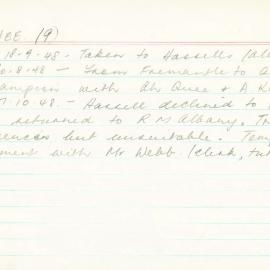 (9)
18-9-48 - Taken to Hassells (Al
-8-48 - From Fremantle to A
with Ah Quee + A K
7.10.48 - Hassell declined to
returned to R M Albany. Th
but unsuitable. Tem
ment with Mr Webb (clerk, tut